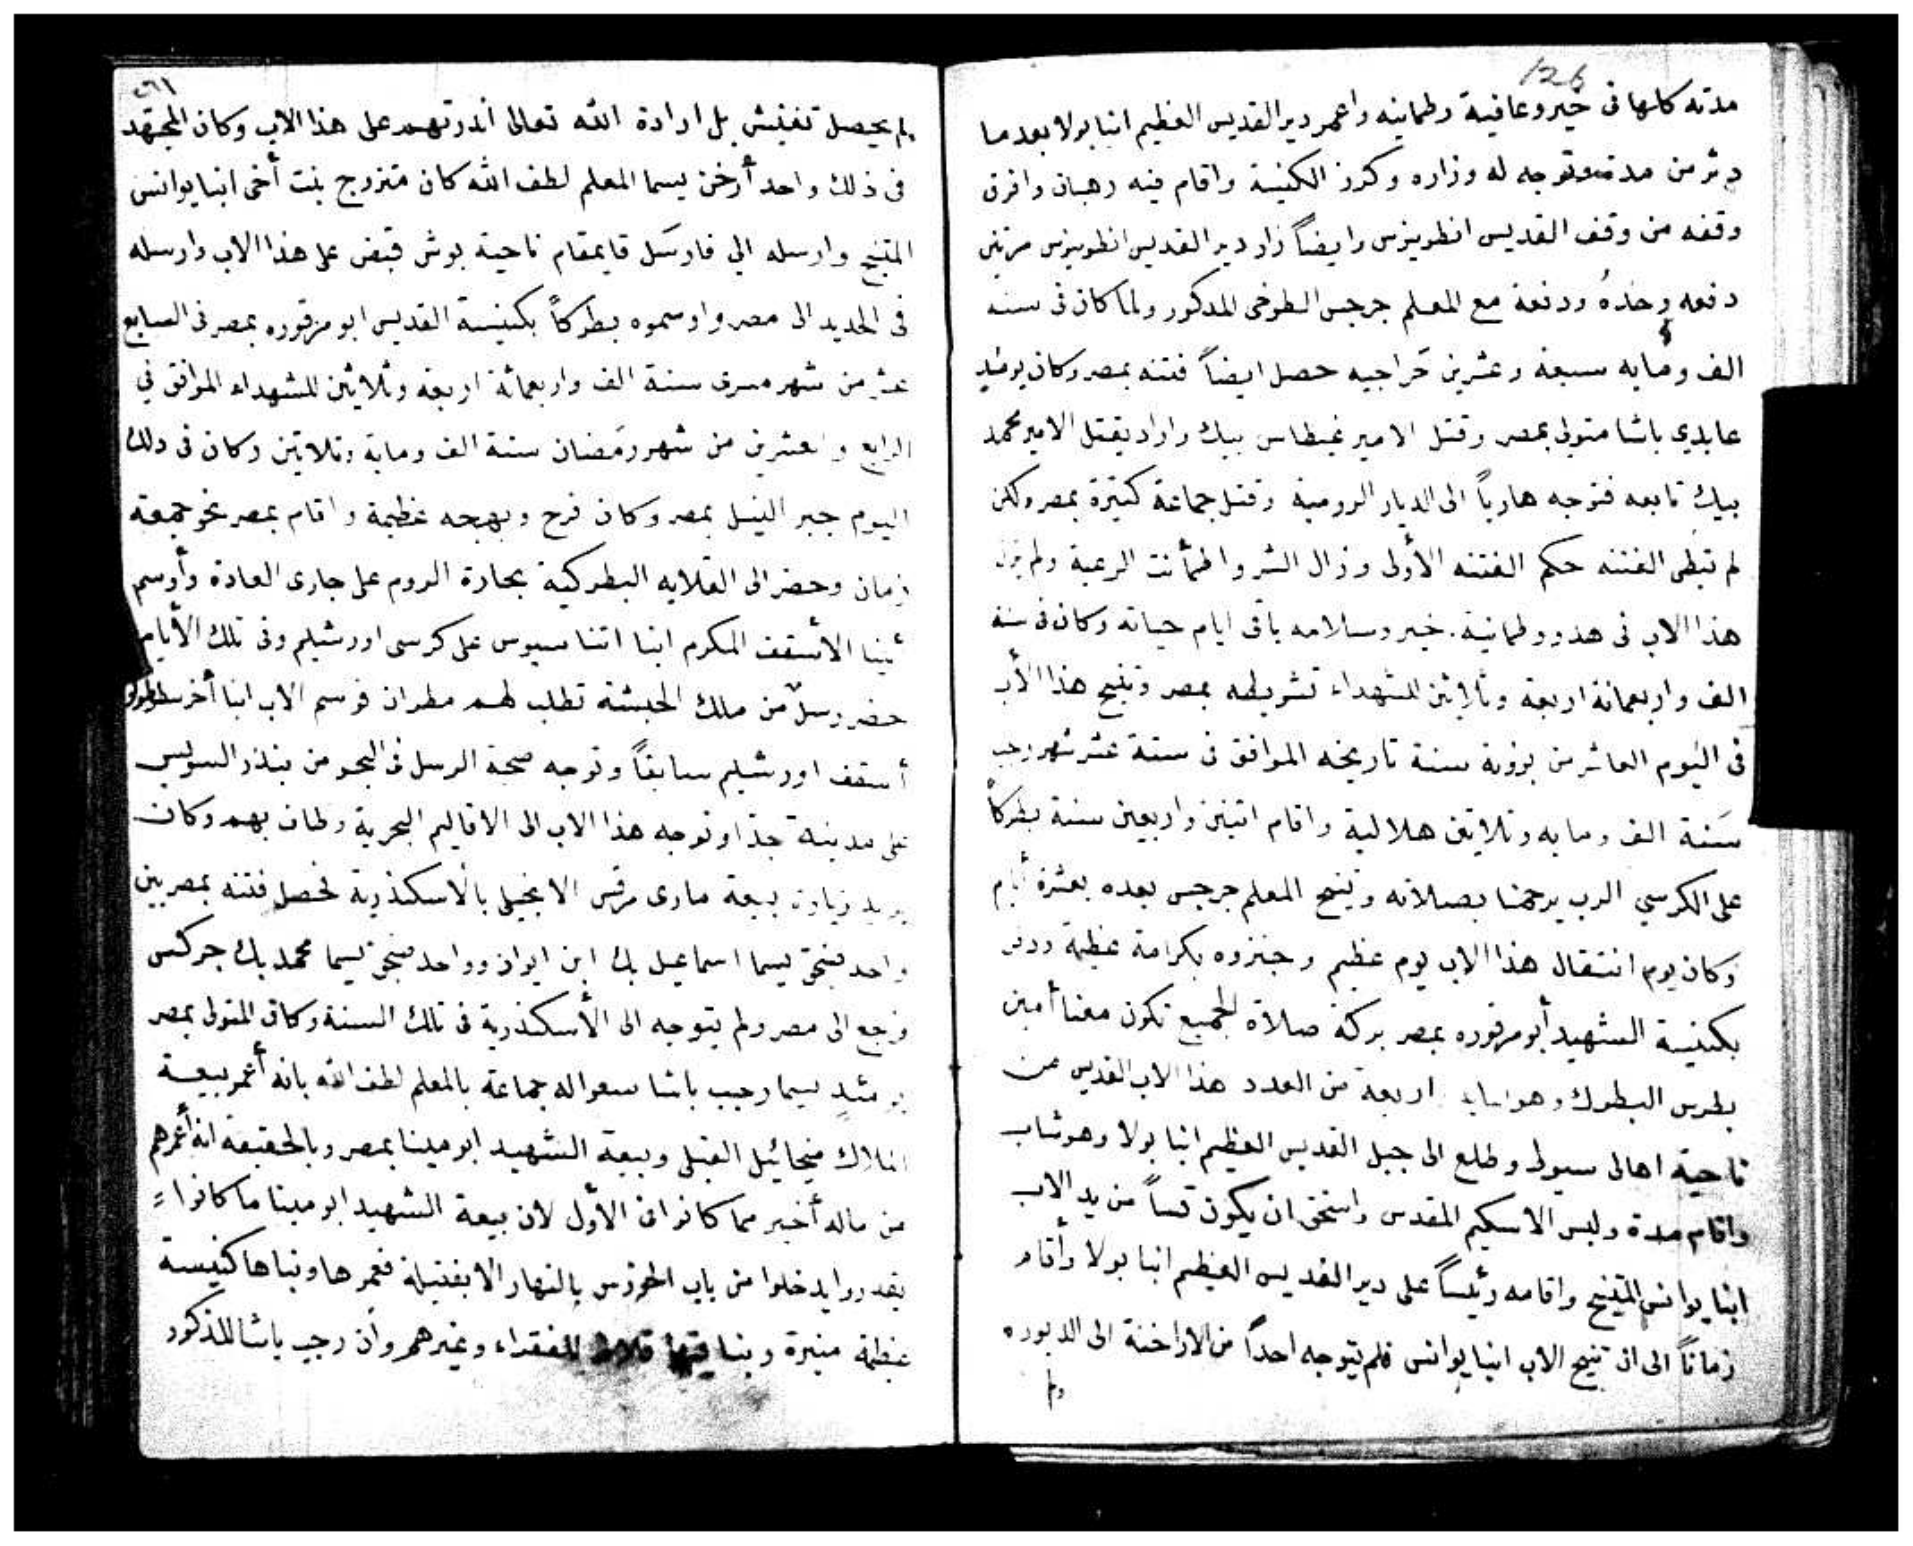 126
مدته كلها فى خير وعافية وطمانينه واعمر دير القديس العظيم انبا بولا بعد ما
دثر من مدة وتوجه له وزاره وكرز الكنيسة واقام فيه رهبان وافرق
وقفه من وقف القديس انطونيوس وايضاً زار دير القديس انطونيوس مرتين
دفعه وحدهُ ودفعة مع المعلم جرجس الطوخى المدكور ولما كان فى سنة
الف ومايه سبعة وعشرين خراجيه حصل ايضاً فتنه بمصر وكان يومئيد
عابدي باشا متولى بمصر وقتل الامير غيطاس بيك واراد يقتل الامير محمد
بيك تابعه فتوجه هارباً الى الديار الرومية وقتل جماعة كتيرة بمصر ولكن
لم تبطى الفتنه حكم الفتنه الأولى وزال الشر واطمأنت الرعية ولم يزل
هذا الاب فى هدو وطمانية خير وسلامه باقى ايام حياته وكان فى سنة
الف واربعمائة اربعة وثلاثين للشهداء تشويطه بمصر وتنيح هذا الأب
فى اليوم العاشر من بؤونة سنة تاريخه الموافق فى ستة عشر شهر رجب
سَنة الف ومايه وتلاتين هلالية واقام اتنين واربعين سنة بطركاً
على الكرسي الرب يرحمنا بصلاته وتنيح المعلم جرجس بعده بعشرة أيام
وكان يوم انتقال هذا الاب يوم عظيم وجنزوه بكرامة عظيمة ودفن
بكنيسة الشهيد أبو مرقوره بمصر بركة صلاة الجميع تكون معنا أمين
بطرس البطرك وهو اربعة من العدد هذا الاب القديس من
ناحية اهالى سيوط وطلع الى جبل القديس العظيم انبا بولا وهو شاب
واقام مدة ولبس الاسكيم المقدس واستحق ان يكون قساً من يد الاب
انبا يوانس المتنيح واقامه رئيساً على دير القديس العظيم انبا بولا وأقام
زماناً الى ان تنيح الاب انبا يوانس فلم يتوجه احداً من الاراخنة الى الديوره
ولم
لم يحصل تفتيش بل ارادة الله تعالى اندرتهم على هذا الاب وكان المجتهد
فى ذلك واحد أرخن يسما المعلم لطف الله كان متزوج بنت أخى انبا يوانس
المتنيح وارسله الي فارسَل قايمقام ناحية بوش قبض على هذا الاب وارسله
فى الحديد الى مصر واوسموه بطركاً بكنيسة القديس ابو مرقوره بمصر فى السابع
عشر من شهر مسرى سنة الف واربعمائة اربعة وثلاثين للشهداء الموافق في
الرابع والعشرين من شهر رمَضان سنة الف وماية وتلاتين وكان فى دلك
اليوم جبر النيل بمصر وكان فرح وبهجه عظيمة واقام بمصر نحو جمعة
زمان وحضر الى القلايه البطركية بحارة الروم على جارى العادة وأرسم
الأسقف المكرم انبا اتناسيوس على كرسى اورشليم وفى تلك الأيام
حضر رسلٌ من ملك الحبشة تطلب لهم مطران فوسم الاب انبا أخرسطودلو
أسقف اورشليم سابقاً وتوجه صحبة الرسل فى البحر من بندر السويس
على مدينة جدّا وتوجه هذا الاب الى الاقاليم البحرية وطاف بهم وكان
يريد زيارة بيعة مارى مرقس الانجيلى بالأسكندرية فحصل فتنه بمصر بين
واحد صنجق يسما اسماعيل بك ابن ايواز وواحد صنجق يسما محمد بك جركس
ورجع الى مصر ولم يتوجه الى الأسكندرية فى تلك السنة وكان المتولى بمصر
يومئدٍ يسما رجب باشا سعوا له جماعة بالمعلم لطف الله بانه أعمر بيعة
الملاك ميخائيل القبلى وبيعة الشهيد ابو مينا بمصر وبالحقيقة انه أعمرهم
من ماله أخير مما كانوا فى الأول لان بيعة الشهيد ابو مينا ما كانوا
يقدروا يدخلوا من باب الخورس بالنهار الا بفتيلة فعمرها وبناها كنيسة
عظيمة منيرة وبنا فيها للفقراء وغيرهم وأن رجب باشا المذكور